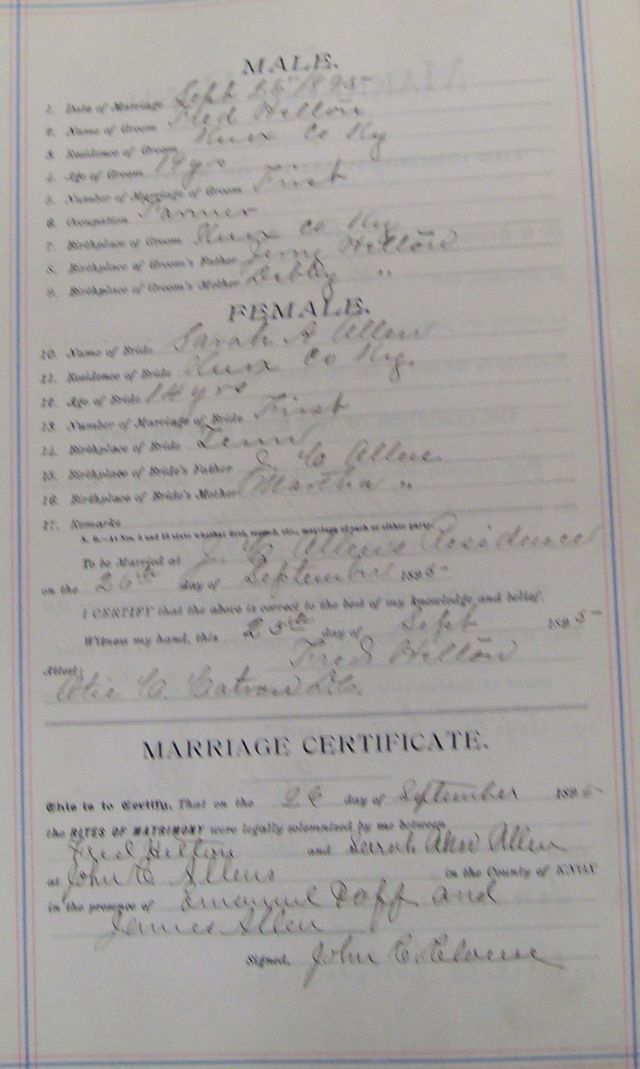 MALE.
1. Date of Marriage Sept 26" 1895
2. Name of Groom Fred Helton
3. Residence of Groom Knox Co Ky
4. Age of Groom 19 yrs
5. Number of Marriage of Groom First
6. Occupation Farmer
7. Birthplace of Groom Knox Co Ky
8. Birthplace of Groom's Father Helton
9. Birthplace of Groom's Mother Debby "
FEMALE.
10. Name of Bride Sarah A Allen
11. Residence of Bride Knox Co Ky.
12. Age of Bride 14 yrs
13. Number of Marriage of Bride First
14. Birthplace of Bride Tenn
15. Birthplace of Bride's Father C Allen
16. Birthplace of Bride's Mother Martha "
17. Remarks
N. B.—At Nos. 5 and 13 state whether first, second, etc., marriage of each or either party.
To be Married at J. C. Allen's Residence
on the 26th day of September 1895
I CERTIFY that the above is correct to the best of my knowledge and belief.
Witness my hand, this 25th day of Sept 1895
Fred Helton
Attest: C. Catron D.C.
MARRIAGE CERTIFICATE.
This is to Certify, That on the 26 day of September 1895
the RITES OF MATRIMONY were legally solemnized by me between
Fred Helton and Sarah Ann Allen
at John C Allens in the County of KNOX
in the presence of Emanuel and
James Allen
Signed, John C.